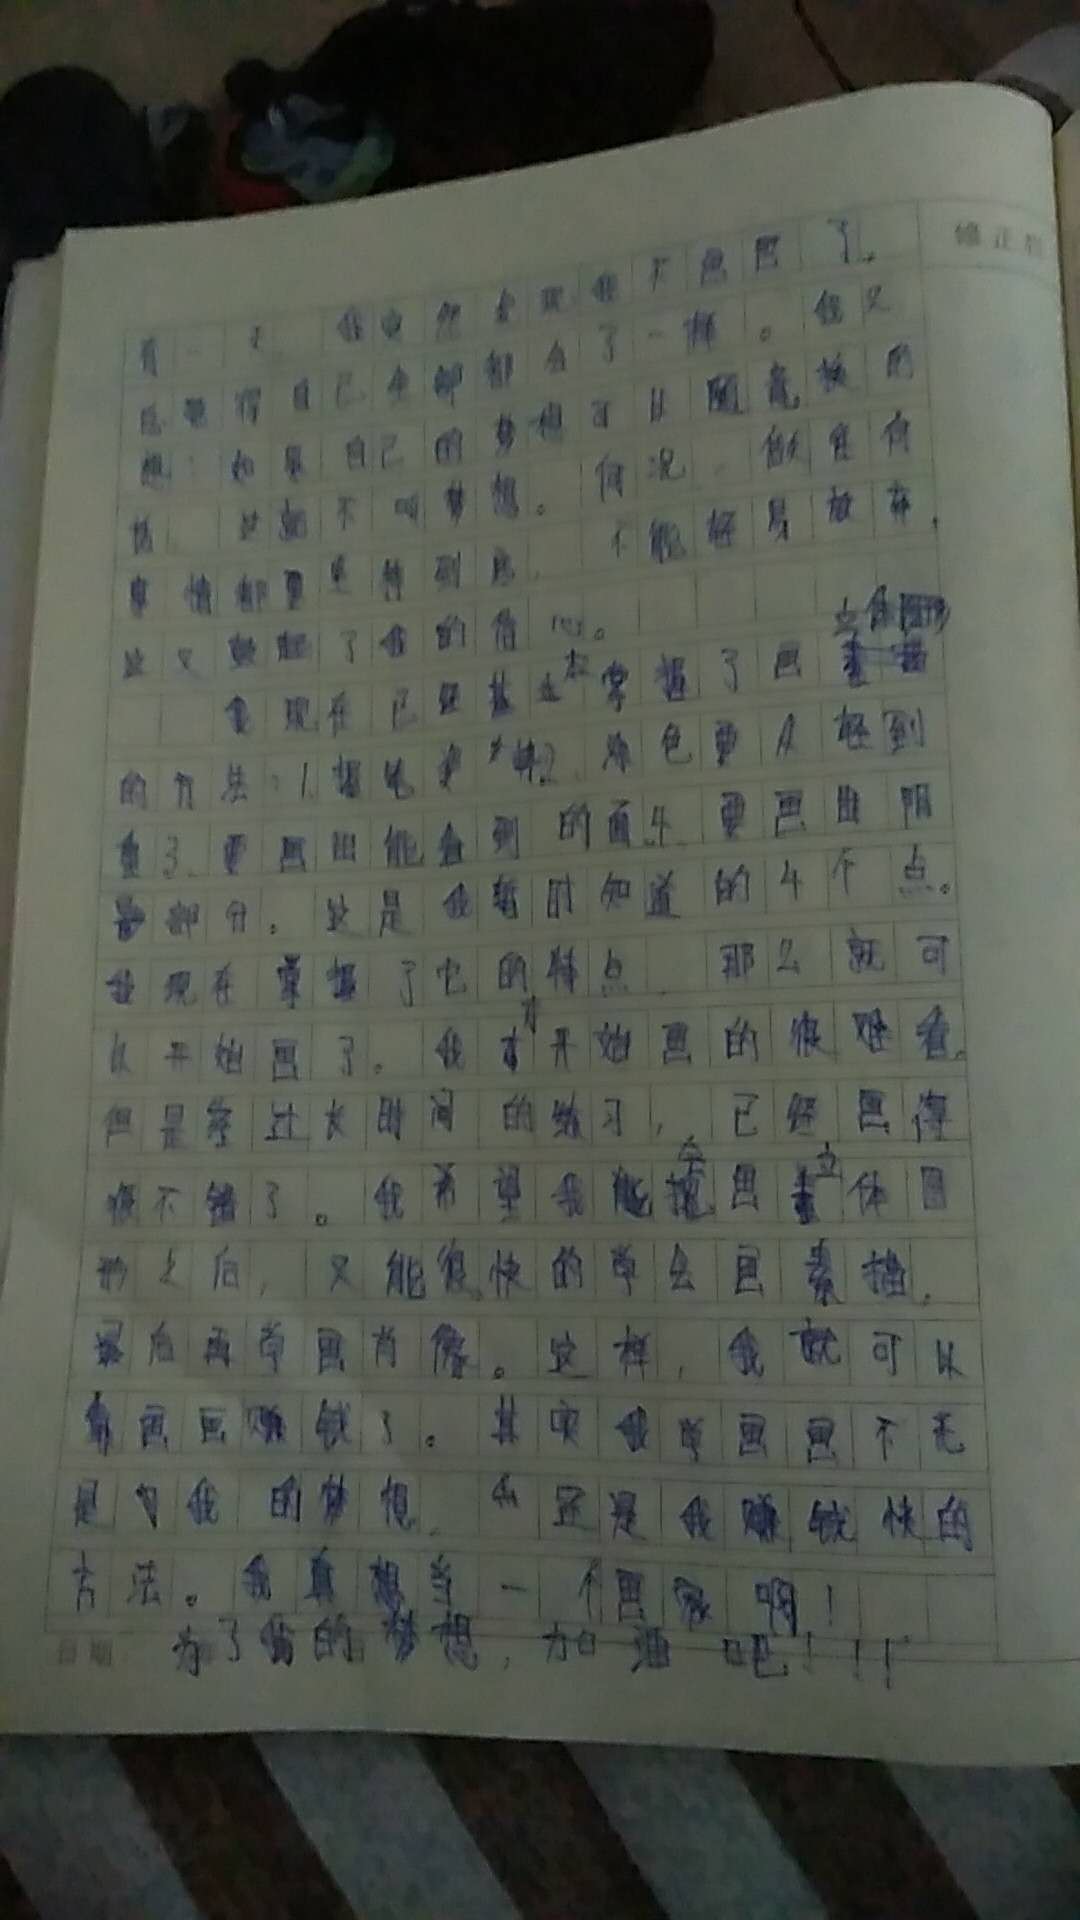 修正
有一天，我突然发现我不想画了。
总觉得自己全部都会了一样。但又
想：如果自己的梦想可以随意换的
话，这就不叫梦想。何况，做任何
事情都要坚持到底，不能轻易放弃，
这又鼓起了我的信心。
我现在已经基本掌握了画立体图形
的方法：1.握笔要 2.涂色要从轻到
重3.要画出能看到的面4.要画出阴
影部分。这是我暂时知道的4个点。
我现在掌握了它的特点，那么就可
以开始画了。我才开始画的很难看。
但是经过长时间的练习，已经画得
很不错了。我希望我能会画立体图
形之后，又能很快的学会画素描，
最后再学画肖像。这样，我就可以
靠画画赚钱了。其实我学画画不光
是为我的梦想，还是我赚钱快的
方法。我真想当一个画家啊！
为了我的梦想，加油吧！！！
日期